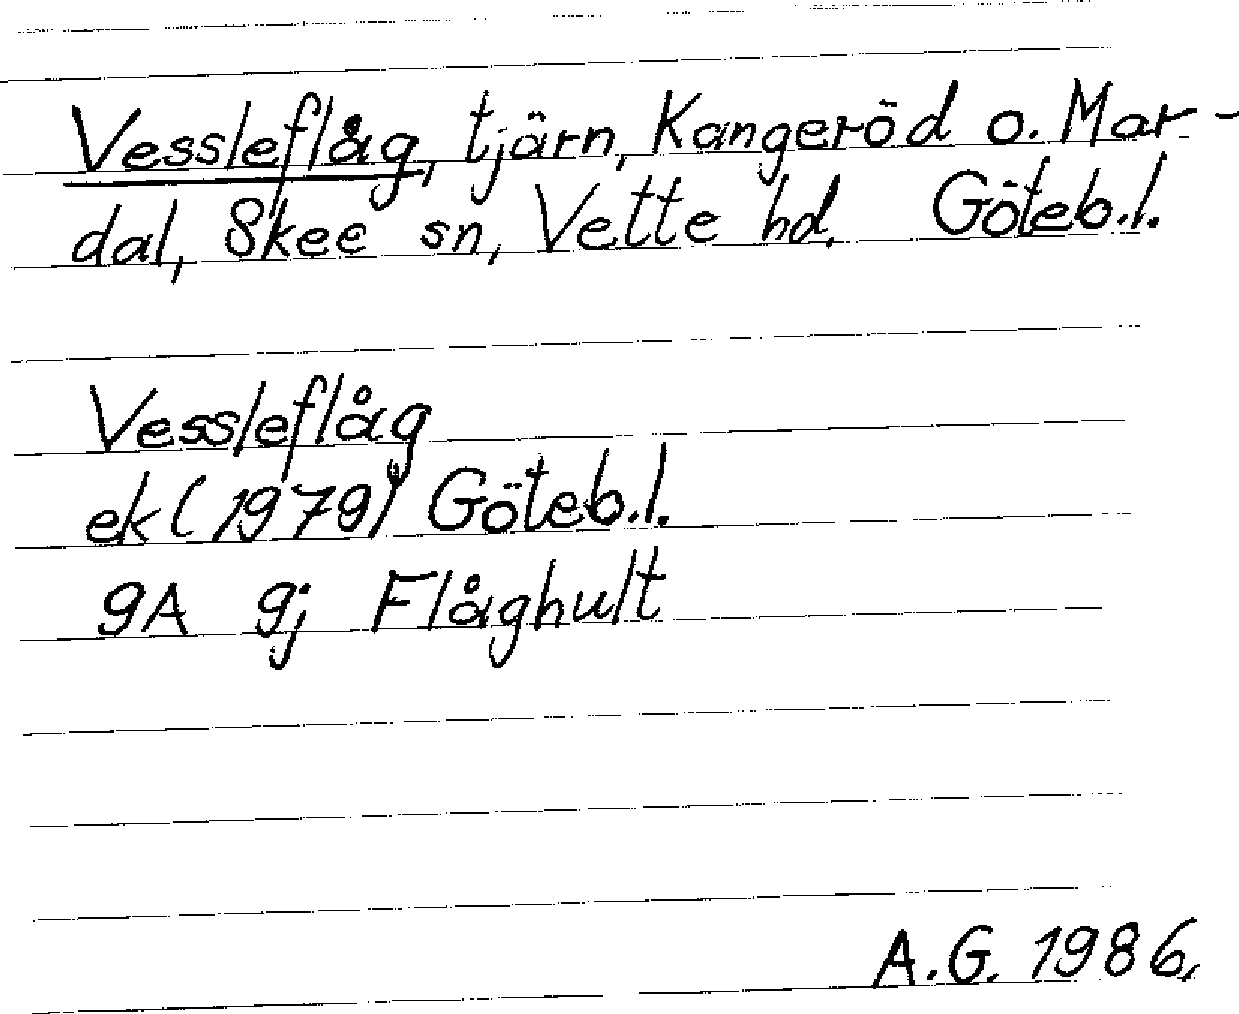 Vessleflåg, tjärn, Kangeröd o. Mar-
dal, Skee sn, Vette hd. Göteb.l.
Vessleflåg
ek (1979) Göteb.l.
9A 9j Flåghult
A.G. 1986.